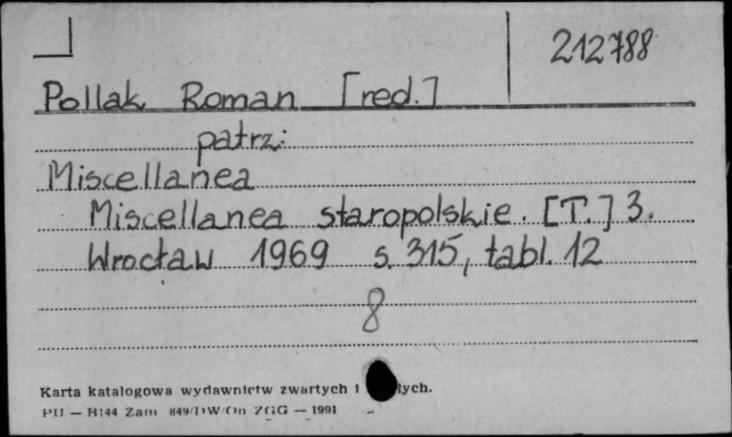 212788
Pollak Roman [red.]
patrz:
Miscellanea
Miscellanea staropolskie. [T.] 3.
Wrocław 1969 s. 315, tabl. 12
8
Karta katalogowa wydawnictw zwartych i
PU — B144 Zam 849/DW/On ZGG — 1991